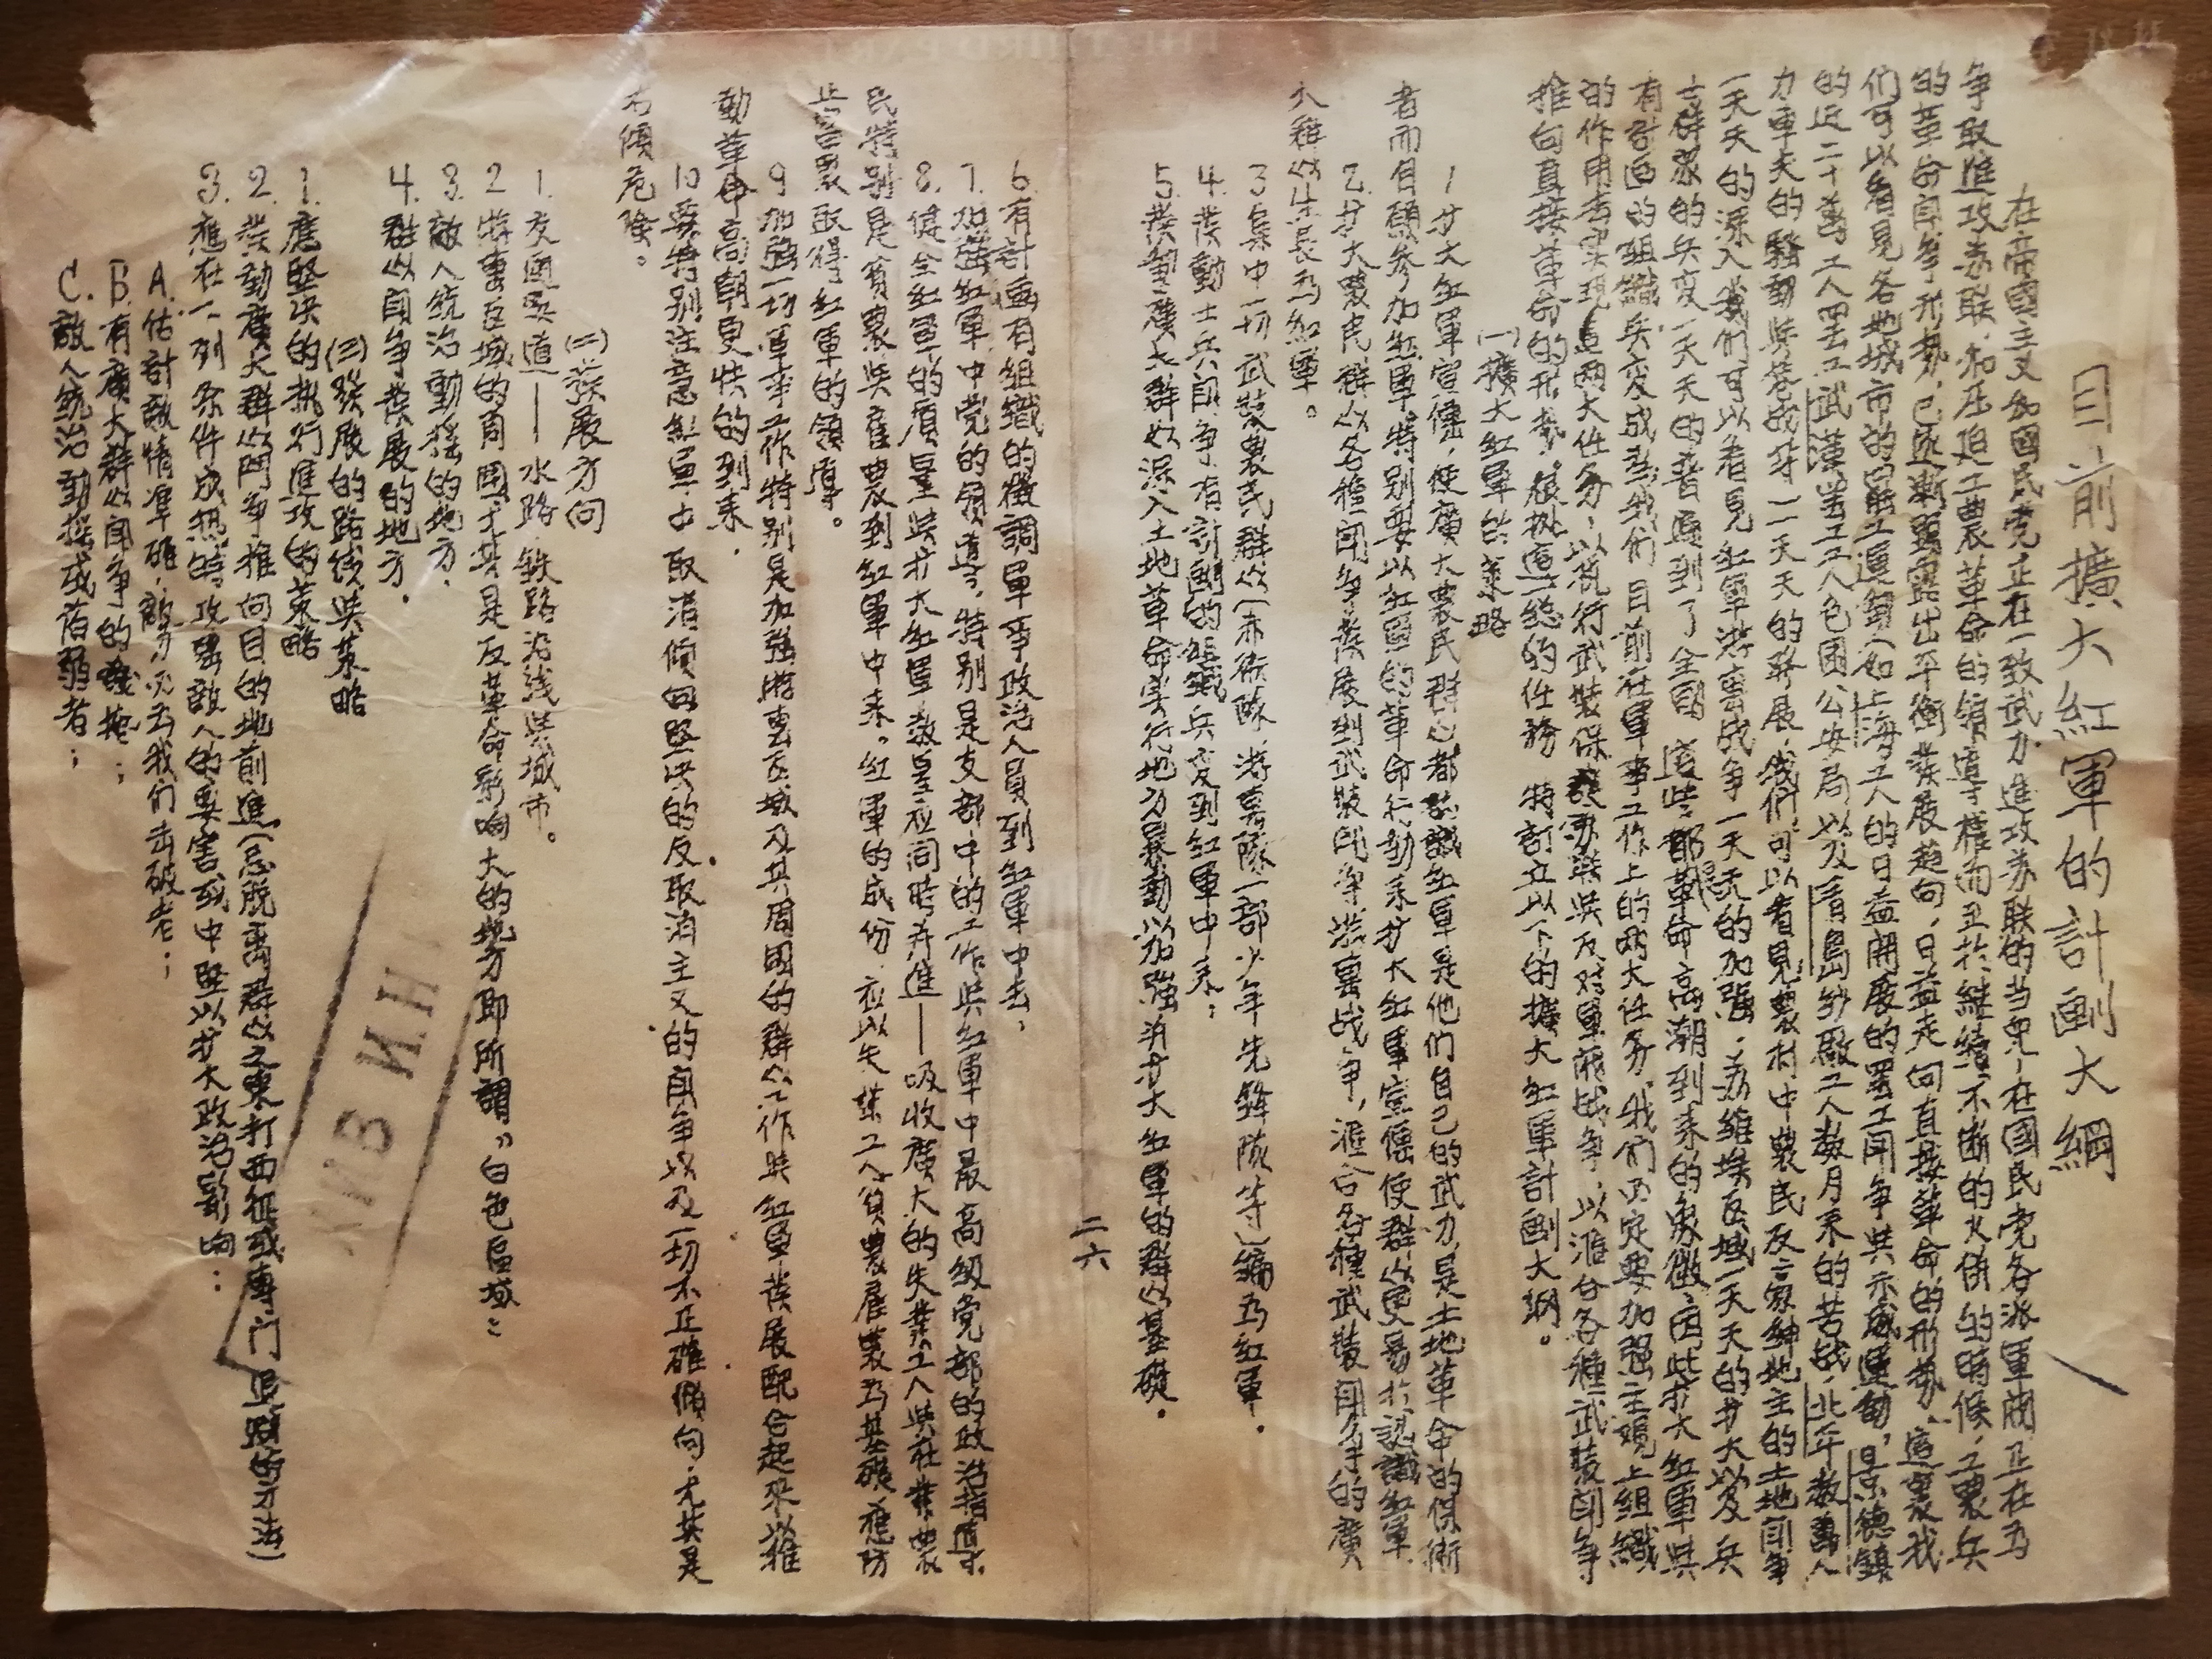 目前擴大紅軍的計劃大綱
在帝國主义和國民党正在一致武力進攻苏联的当兒，在國民党各派軍閥正在為
争取進攻苏联和压迫工農革命的領導權而至於継續不断的火併的時候，工農兵
的革命鬥争形勢，已逐漸顕露出平衡發展趋向，日益走向直接革命的形勢，這裏我
们可以看見各地城市的罷工運動（如上海工人的日益開展的罷工鬥争與示威運動，景德鎮
的近二十萬工人罢工武漢罢工工人包圍公安局以及青島紗廠工人数月来的苦战，北平数萬人
力車夫的騷動與
一天天的深入我们可以看見紅軍游击战争一天天的加强，苏維埃区域一天天的扩大以及兵
士群眾的兵变一天天的普遍到了全国 這些都是革命高潮到来的象徵，因此扩大紅軍與
有計画的組織兵变成為我们目前在軍事工作上的兩大任务，我们必定要加强主观上組織
的作用去实現這兩大任务，以执行武裝保護苏联與反对軍阀战争，以滙合各種武装鬥争
推向直接革命的形勢，根椐這一总的任務 特訂立以下的擴大紅軍計劃大綱。
(一)擴大紅軍的策略
1 扩大紅軍宣傳，使廣大農民群众都認識紅軍是他们自己的武力，是土地革命的保衛
者而自願参加紅軍，特别要以紅軍的革命行动来扩大紅軍宣傳使群众更易於認識紅軍
2. 扩大農民群众各種鬥争發展到武裝鬥争游击战争，滙合各種武裝鬥争的廣
大群众生長為紅軍。
3 集中一切武裝農民群众（赤衛隊 游击隊一部少年先鋒隊等）編為紅軍．
4. 發動士兵鬥争有計劃的組織兵变到紅軍中来；
5. 發動廣大群众深入土地革命实行地方暴動以加强消扩大紅軍的群众基礎．
二六
6. 有計画有組織的徵調軍事政治人員到紅軍中去，
7. 加强紅軍中党的領導，特别是支部中的工作與紅軍中最高級党部的政治指導
8. 健全紅軍的質量與扩大紅軍数量应同時并進——吸收廣大的失業工人與在業農
民特别是貧農與雇農到紅軍中来。紅軍的成份应以失業工人貧農雇農為基礎預防
止富農取得紅軍的領導。
9 加强一切軍事工作特别是加强游击区域及其周围的群众工作與紅軍發展配合起来以推
動革命高朝更快的到来．
10 要特别注意紅軍中取消傾向坚决的反取消主义的鬥争以及一切不正確傾向，尤其是
右傾危險。
(二)發展方向
1. 交通要道——水路 铁路沿线與城市。
2 游击区域的周围尤其是反革命影响大的地方即所謂”白色區域：
3. 敵人统治動搖的地方．
4. 群众鬥争發展的地方．
(三)發展的路线與策略
1. 應堅决的执行進攻的策略
2. 發動廣大群众鬥争推向目的地前進（忌脱离群众之東打西征或專门退路等方法）
3. 應在一列条件成熟時攻擊敵人的要害或中堅以扩大政治影响：
A. 估計敵情準確，敵势必為我们击破者；
B. 有廣大群众鬥争的；
C. 敵人統治動搖或落弱者；